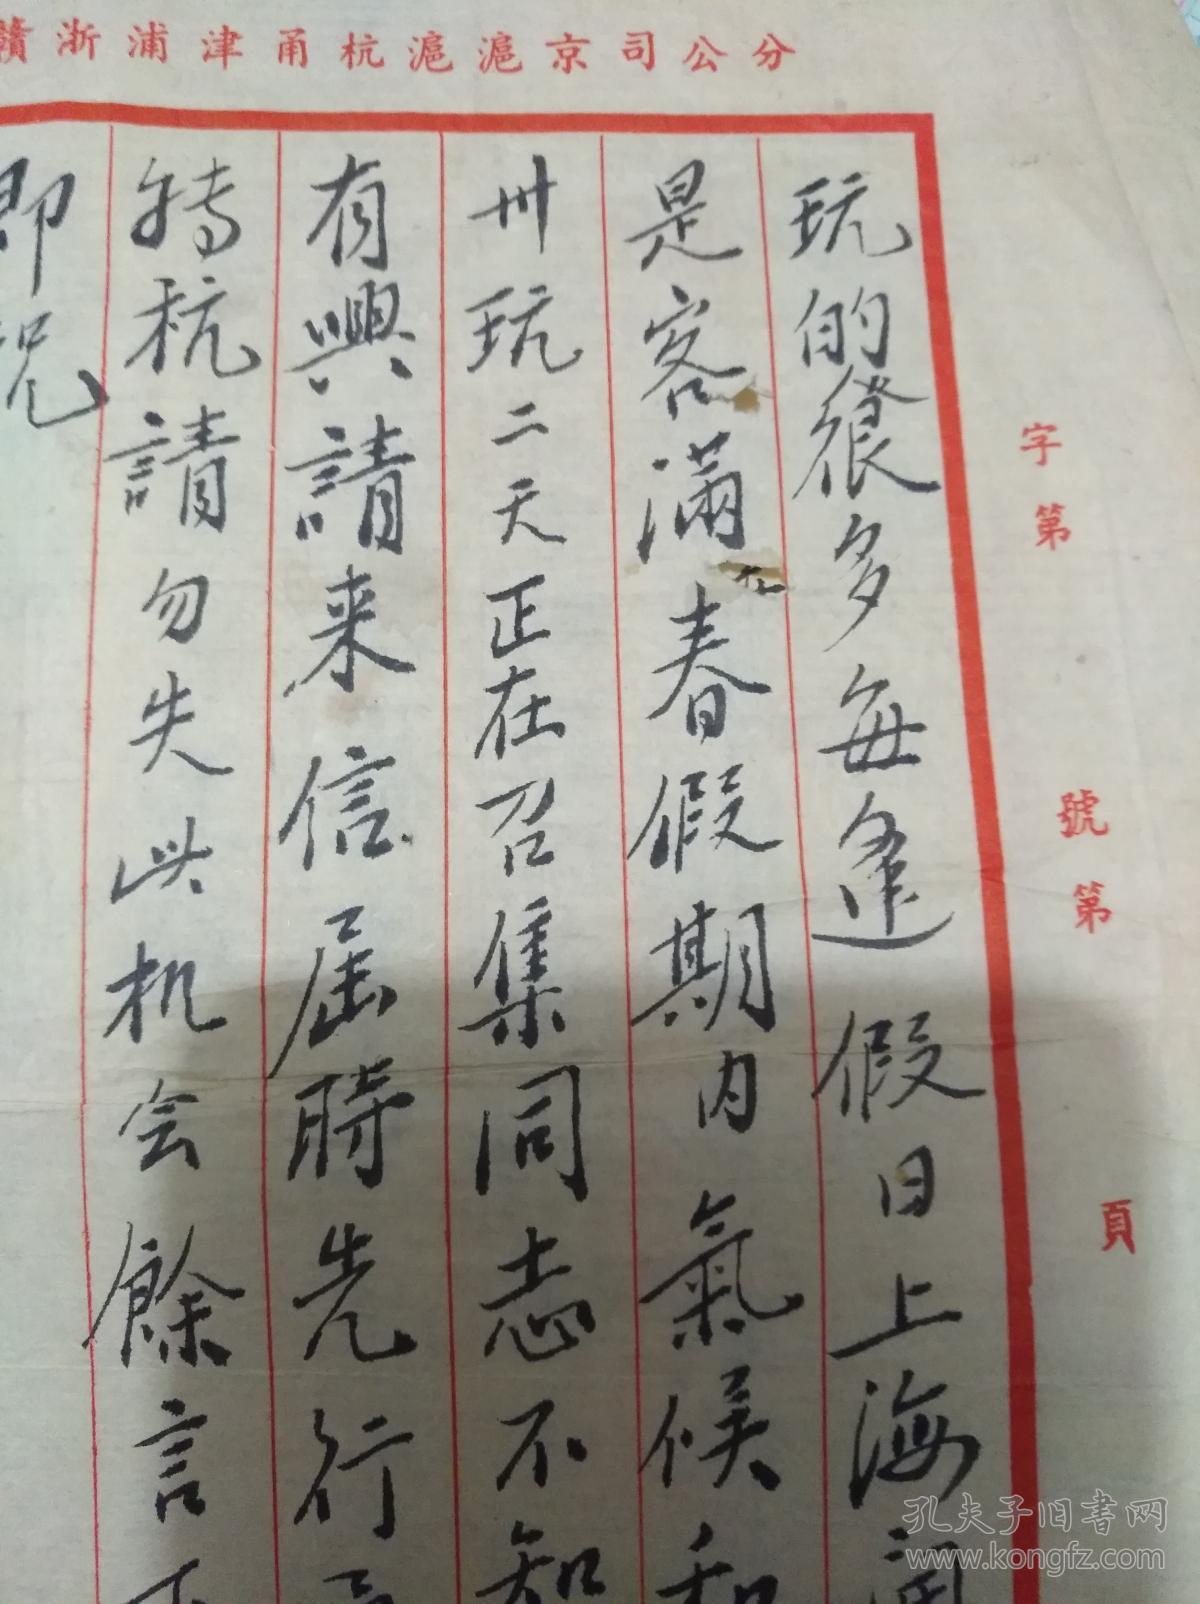 分公司京滬滬杭甬津浦浙贛
字第 號第 頁
玩的很多每逢假日上海
是客滿在春假期内氣候和
卅玩二天正在召集同志不知
有興請来信屆時先行
轉杭請勿失此机会餘言
即祝
孔夫子旧书网
www.kongfz.com